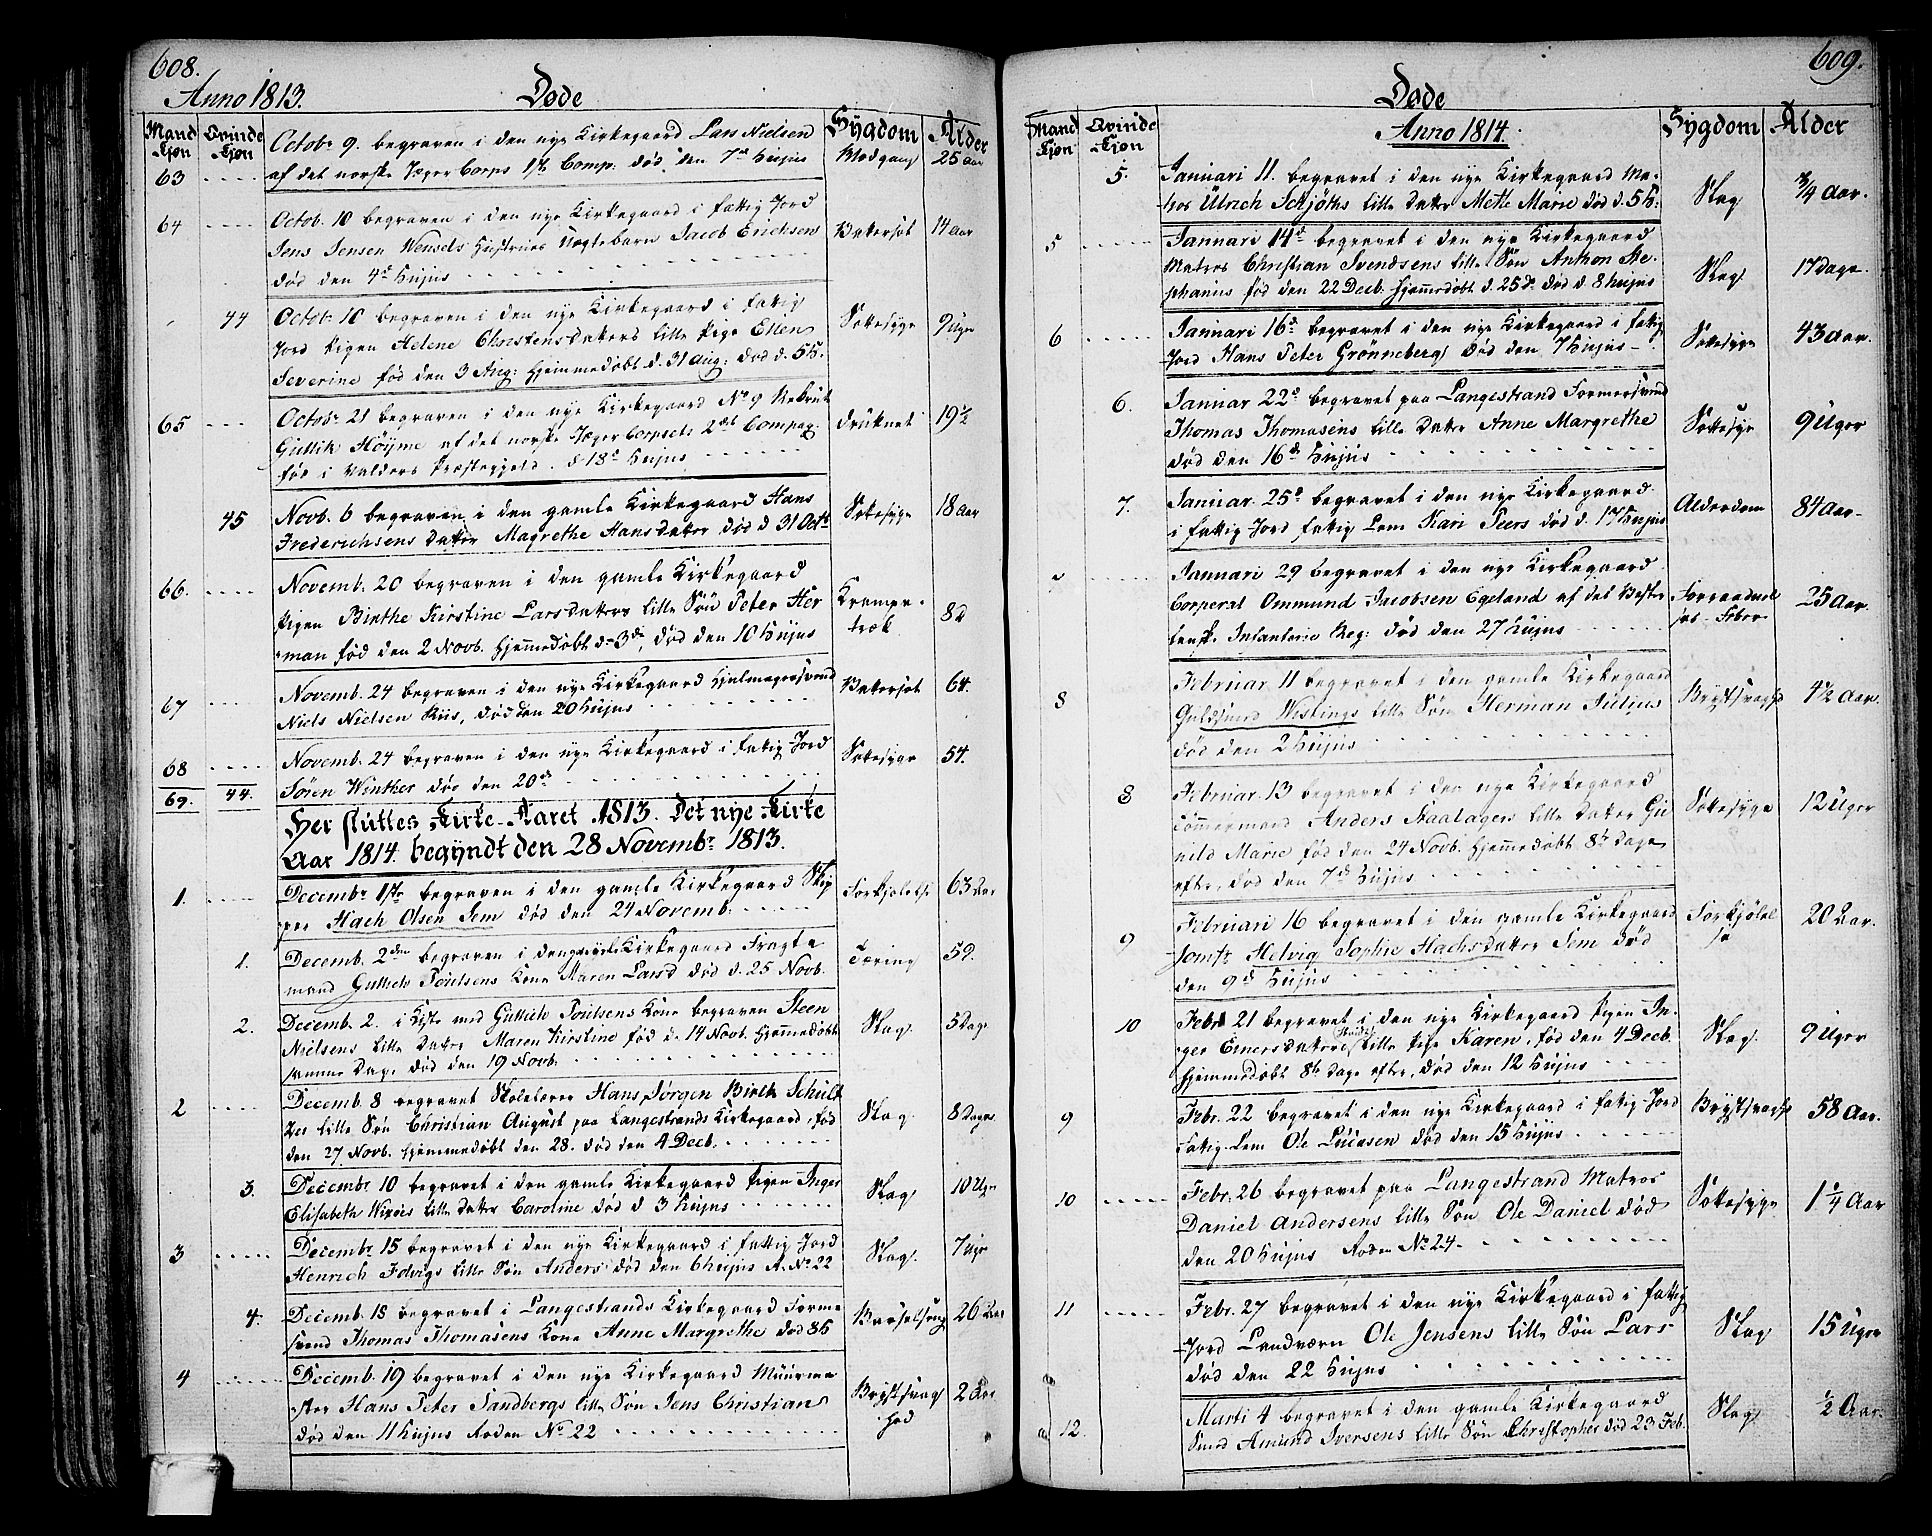 608.
Anno 1813.
Døde
Mand Kjøn
Qvinde Kjøn
Sygdom
Alder
63
Octobr 9. begraven i den nye Kirkegaard Lars Nielsen
Modgang
25 Aar
af det norske Jæger Corps 1ste Comp. død den 7de hujus
64
Octob. 10 begraven i den nye Kirkegaard i fattig Jord
Jens Jensen Hustrues Pogtebarn Jacob Erichsen
Vatersot
14 Aar
død den 4de hujus
44
Octob. 10 begraven i den nye Kirkegaard i fattig
Jord Pigen Helene Christensdatters lille Pige Ellen
Sottesyge
9 Uger
Severine fød den 3 Aug: hjemmedøbt d. 31 Aug: død d. 5 h.
65
Octobr 21 begraven i den nye Kirkegaard No 9 Rekrut
Guttik Höyme af det norske Jæger Corpsets 2det Compag:
druknet
19 1/2
fød i Valders Præstegjeld. d. 18d hujus
45
Novb. 6 begraven i den gamle Kirkegaard Hans
Frederichsens datter Magrethe Hansdatter død d 31 Octb
Sottesyge
18 Aar
66
Novemb. 20 begraven i den gamle Kirkegaard
Pigen Birthe Kirstine Larsdatters lille Søn Peter Her
Krampe-
træk
8 d
man fød den 2 Novb. hjemmedøbt d. 3de, død den 10 hujus
67
Novemb. 24 begraven i den nye Kirkegaard Hjulmagersvend
Niels Nielsen Riis, død den 20 hujus
Vatersot
64.
68
Novemb. 24 begraven i den nye Kirkegaard i fattig Jord
Søren Winther død den 20de
Sottesyge
54.
69. 44.
Her sluttes Kirke-Aaret 1813. Det nye Kirke
Aar 1814. begyndt den 28 Novembr 1813.
1.
Decembr 1ste begraven i den gamle Kirkegaard Skip
per Hach Olsen Sem død den 24 Novemb.
Forkjølelse
63 Aar
1.
Decemb. 2den begraven i den gamle Kirkegaard Fragte
mand Guttich Poulsens Kone Maren Larsd død d. 25 Novb.
Tæring
59.
2.
Decemb. 2. i Kiste med Guttich Poulsens Kone begraven Steen
Nielsens lille datter Maren Kirstine fød d. 14 Novb. hjemmedøbt
Slag
5 Dage
samme Dag. død den 19 Novb.
2
Decemb. 8 begravet Skolelærer Hans Jørgen Birch Schult
zes lille Søn Christian August paa Langestrands Kirkegaard, fød
Slag
8 Dage
den 27 Novb. hjemmedøbt den 28. død den 4 Decb.
3.
Decembr 10 begravet i den gamle Kirkegaard Pigen Inger
Elisabeth lille datter Caroline død d 3 hujus
Slag
10 Uger
3
Decembr 15 begravet i den nye Kirkegaard i fattig Jord
Henrich lille Søn Anders død den 6 hujus R. No 22
Slag
7 Uger
4.
Decemb. 18 begravet i Langestrands Kirkegaard Forme
svend Thomas Thomasens Kone Anne Margrethe død 8 h
Barselseng
26 Aar
4
Decemb. 19 begravet i den nye Kirkegaard Muurme
ster Hans Peter Sandbergs lille Søn Jens Christian
Brystsvag
hed
2 Aar
død den 11 hujus Roden No 22
609.
Døde
Mand Kjøn
Qvinde Kjøn
Anno 1814.
Sygdom
Alder
5.
Januari 11. begravet i den nye Kirkegaard Ma-
tros Ulrich Schjøths lille datter Mette Marie død d. 5 h.
Slag
3/4 Aar.
5
Januari 14de begravet i den nye Kirkegaard
Matros Christian Svendsens lille Søn Anthon Ste-
Slag
17 dage.
phanus fød den 22 Decb. hjemmedøbt d. 25de død d. 8 hujus
6
Januari 16de begravet i den nye Kirkegaard i fattig
Jord Hans Peter Grönneberg død den 7 hujus
Sottesyge
43 Aar.
6.
Januar 22de begravet paa Langestrand Formersvend
Thomas Thomasens lille datter Anne Margrethe
Sottesyge
9 Uger
død den 16de hujus
7.
Januar. 25de begravet i den nye Kirkegaard
i fattig Jord fattig Lem Kari Peers død d. 17 hujus
Alderdom
84 Aar
7
Januari 29 begravet i den nye Kirkegaard
Corporal Ommund Jacobsen Egeland af det Bester
Forraadnel
ses-Feber
25 Aar.
lensk. Infanterie Reg: død den 27 hujus
8
Februar 11 begravet i den gamle Kirkegaard
Guldsmed Wistings lille Søn Herman Julius
Brystsvaghed
4 1/2 Aar.
død den 2 hujus
8
Februar. 13 begravet i den nye Kirkegaard
Tömmermand Anders Staalagers lille datter Gu
Sottesyge
12 Uger
nild Marie fød den 24 Novb. hjemmedøbt 8te Dage
efter, død den 7de hujus
9
Februari 16 begravet i den gamle Kirkegaard
Jomfr. Helvig Sophie Hachsdatter Sem død
Forkjølel
se
20 Aar.
den 9d hujus
10
Febr 21 begravet i den nye Kirkegaard Pigen In-
ger Emersdatters lille Pige Karen, fød den 4 Decb.
Slag
9 Uger
hjemmedøbt 8te Dage efter, død den 12 hujus
9
Febr. 22 begravet i den nye Kirkegaard i fattig Jord
Fattig-Lem Ole Lucasen død den 15 hujus
Brystsvaghed
58 Aar.
10
Febr. 26 begravet paa Langestrand Matros
Daniel Andersens lille Søn Ole Daniel død
Sottesyge
1 1/4 Aar
den 20 hujus Roden No. 24.
11
Febr. 27 begravet i den nye Kirkegaard i fattig
Jord Landværn Ole Jensens lille Søn Lars
Slag
15 Uger
død den 22 hujus
12.
Marti 4 begravet i den gamle Kirkegaard
Smed Amund Iversens lille Søn Christopher død 23 Feb.
Slag
1/2 Aar.